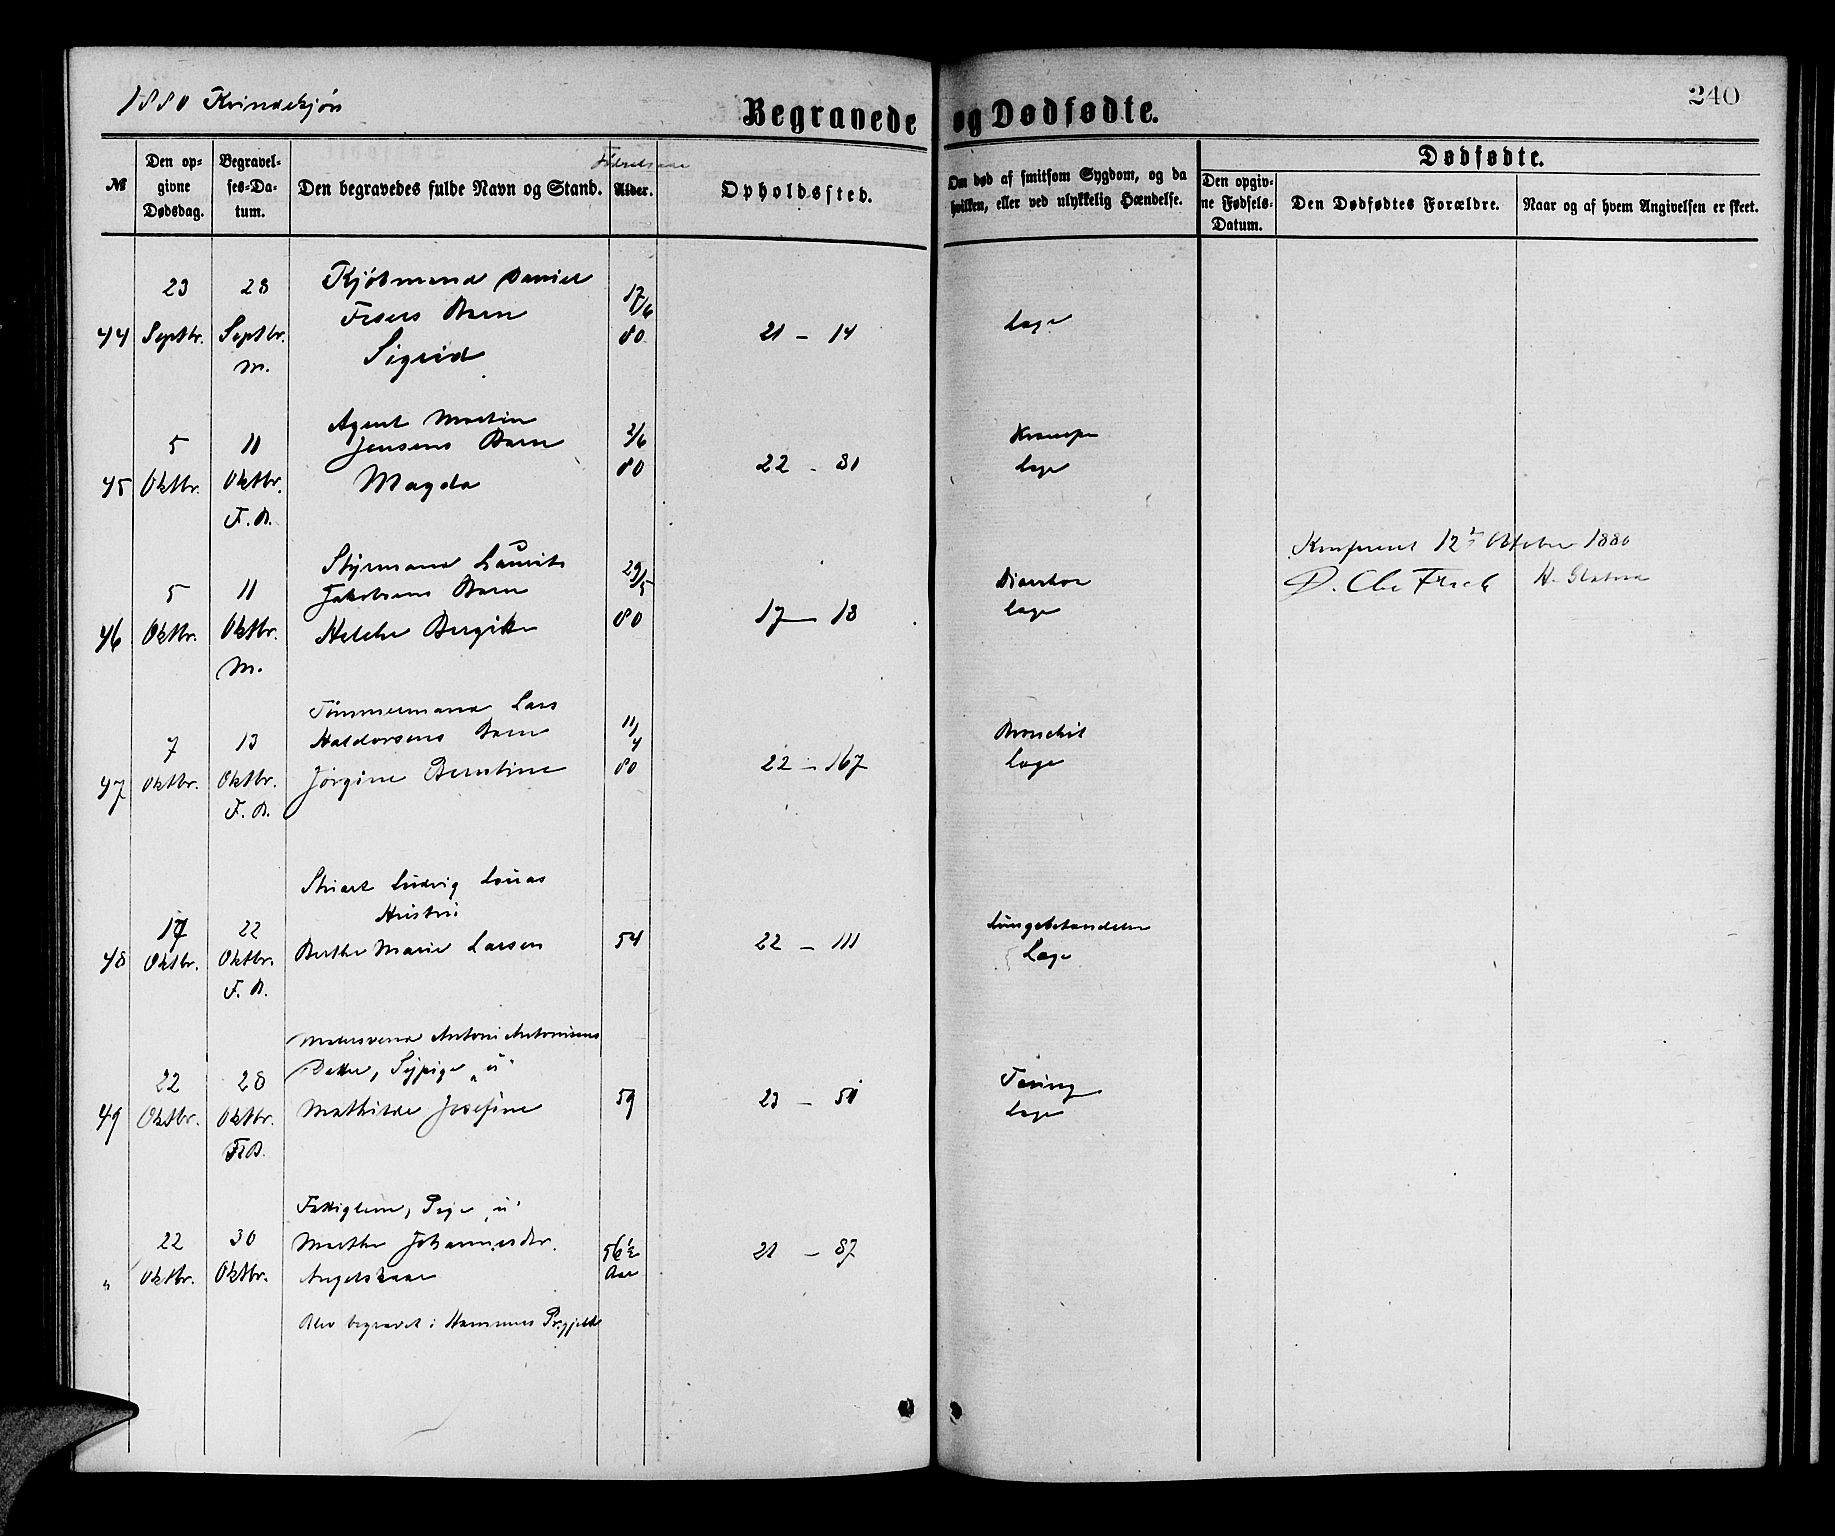 1880 Kvindekjøn
Begravede og Dødfødte.
240
№
Den opgivne Dødsdag.
Begravelses-Datum.
Den begravedes fulde Navn og Stand.
Fødselsaar
Alder.
Opholdssted.
Om død af smitsom Sygdom, og da hvilken, eller ved ulykkelig Hændelse.
Dødfødte.
Den opgivne Fødsels-Datum.
Den Dødfødtes Forældre.
Naar og af hvem Angivelsen er skeet.
23 28 Kjøbmand Daniel 17/6
44 Septbr. Septbr. Barn 80 21 - 14 Læge
M. Sigrid
Agent Martin
5 11 Jensens Barn 3/6 Krampe
45 Oktbr. Oktbr. Magda 80 22 - 81 Læge
F. B.
Styrmand Laurits 29/5
5 11 Jakobsens Barn Diarrhoe
46 Oktbr. Oktbr. Helene Bergitte 80 17 - 18 Læge
M.
Konfereret 12te Oktober 1880
Tømmermand Lars
7 13 Haldorsens Barn 11/4 Bronchit
47 Oktbr. Oktbr. Jørgine Berntine 80 22 - 167 Læge
F. B.
Ludvig Lauas
17 22 Hustru Lungebetændelse
48 Oktbr. Oktbr. Berthe Marie Larsen 54 22 - 111 Læge
F. B.
Antoni Antonisens
22 28 Datter, Sypige, u' Tæring
49 Oktbr. Oktbr. Mathilde Josefine 59 23 - 51 Læge
F. B.
Fattiglem, Pige, u'
22 30 Marthe Johannesdtr. 56½ 21 - 87
" Oktbr. Oktbr. Aar
Blev begravet i Hammers Prgjeld